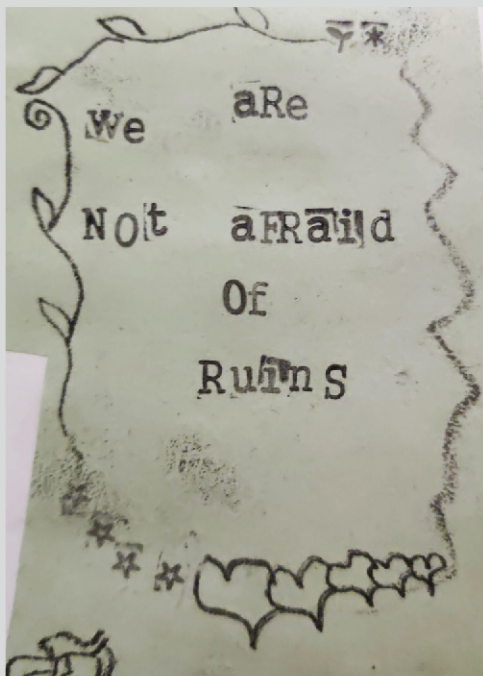 We aRe
NOt aFRaid
Of
RuinS